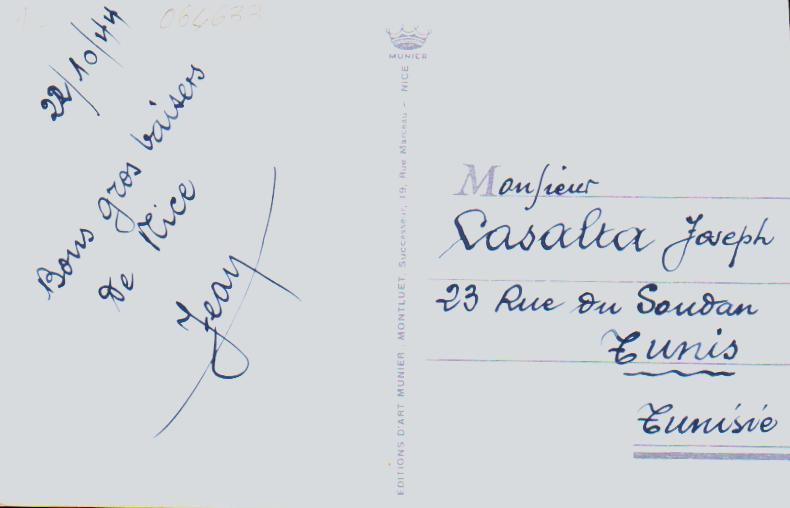 064633
22/10/44
Bons gros baisers
De Nice
Jean
MUNIER
EDITIONS D'ART MUNIER. MONTLUET Successeur, 19, Rue Marceau - NICE
Monsieur
Casalta Joseph
23 Rue du Soudan
Tunis
Tunisie